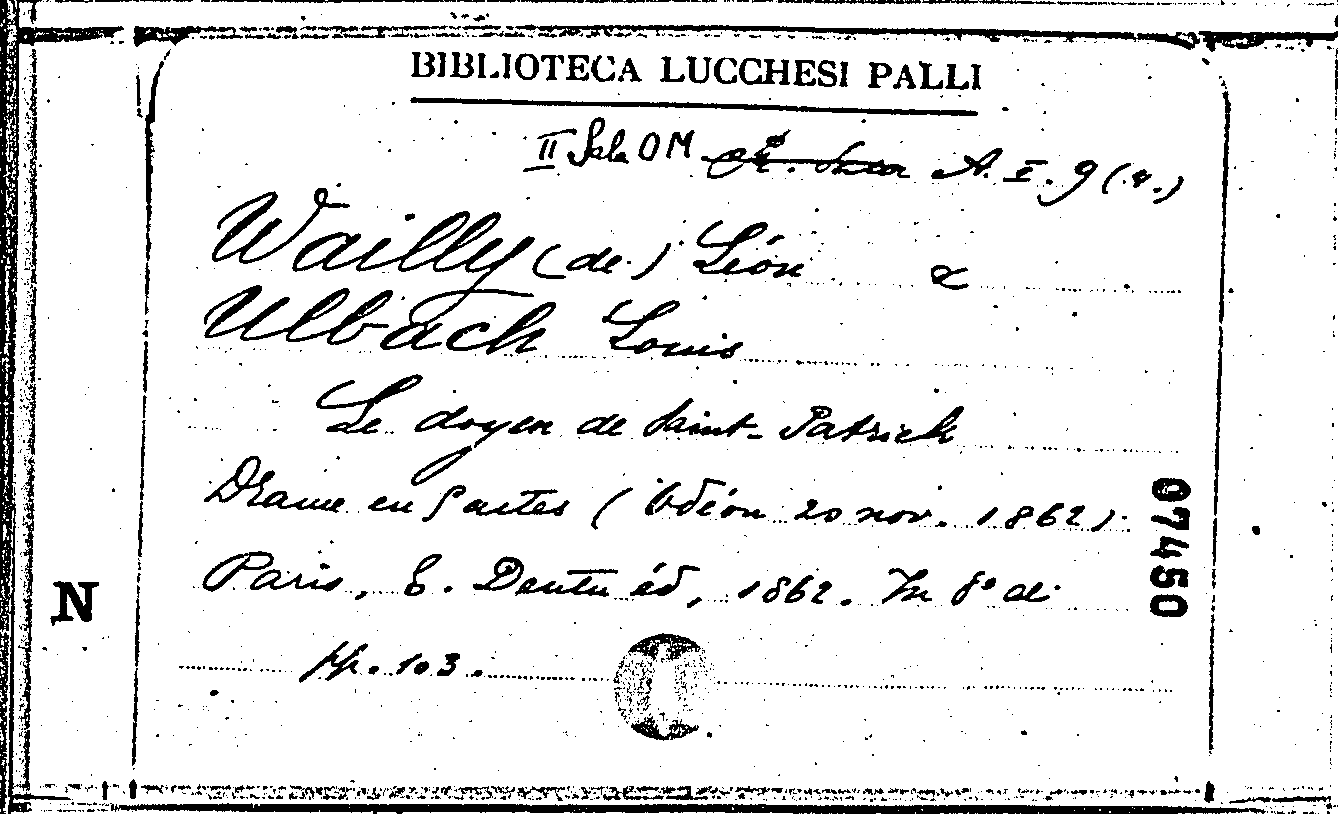 BIBLIOTECA LUCCHESI PALLI
II Sala OM A. I. 9 (4.)
Wailly (de) Léon &
Ulbach Louis
Le doyen de Saint-Patrick
Drame en 5 actes (Odéon 20 nov. 1862)
Paris, E. Dentu éd, 1862. In 8° di
pp. 103.
07450
N